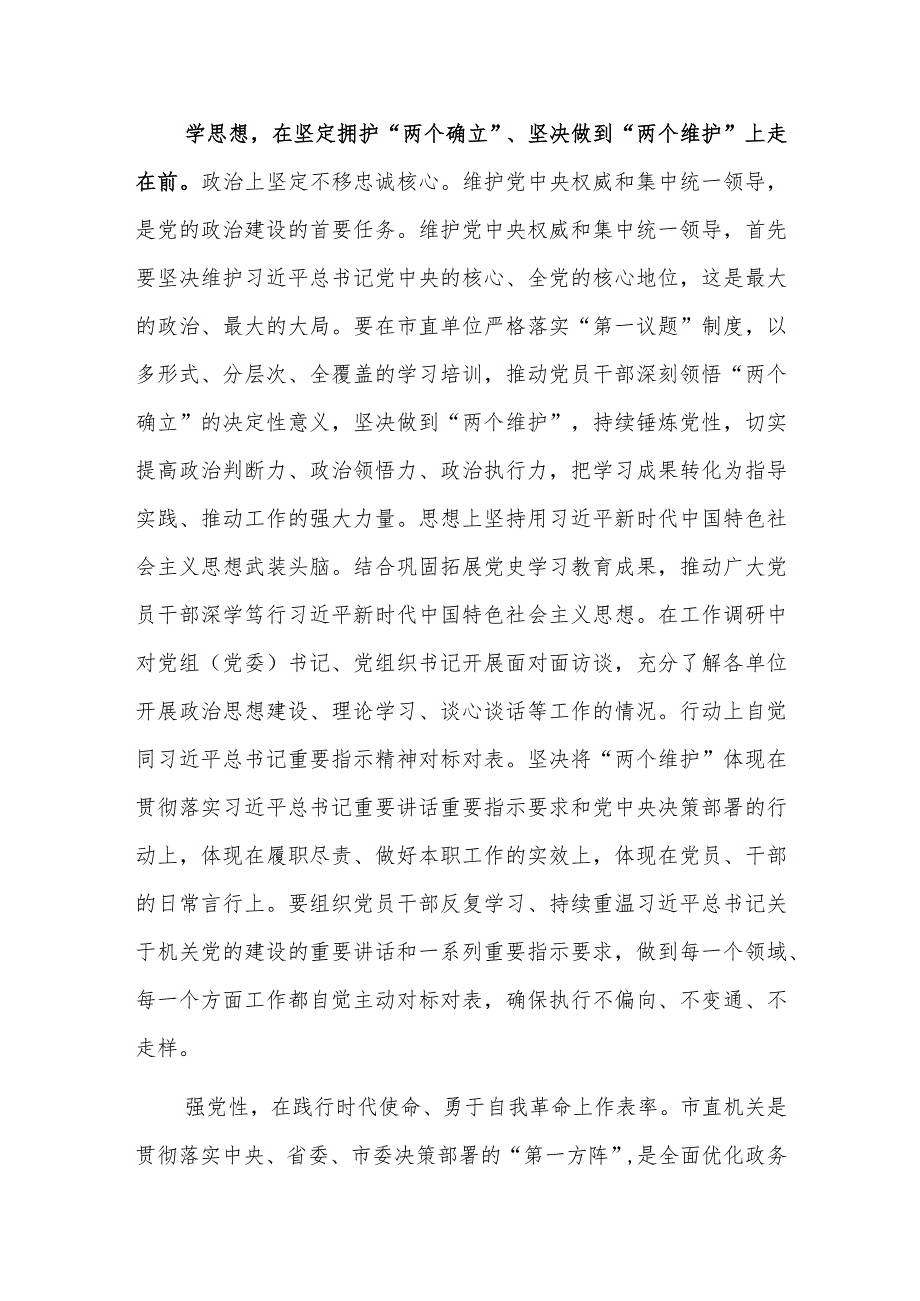 学思想，在坚定拥护“两个确立”、坚决做到“两个维护”上走
在前。政治上坚定不移忠诚核心。维护党中央权威和集中统一领导，
是党的政治建设的首要任务。维护党中央权威和集中统一领导，首先
要坚决维护习近平总书记党中央的核心、全党的核心地位，这是最大
的政治、最大的大局。要在市直单位严格落实“第一议题”制度，以
多形式、分层次、全覆盖的学习培训，推动党员干部深刻领悟“两个
确立”的决定性意义，坚决做到“两个维护”，持续锤炼党性，切实
提高政治判断力、政治领悟力、政治执行力，把学习成果转化为指导
实践、推动工作的强大力量。思想上坚持用习近平新时代中国特色社
会主义思想武装头脑。结合巩固拓展党史学习教育成果，推动广大党
员干部深学笃行习近平新时代中国特色社会主义思想。在工作调研中
对党组（党委）书记、党组织书记开展面对面访谈，充分了解各单位
开展政治思想建设、理论学习、谈心谈话等工作的情况。行动上自觉
同习近平总书记重要指示精神对标对表。坚决将“两个维护”体现在
贯彻落实习近平总书记重要讲话重要指示要求和党中央决策部署的行
动上，体现在履职尽责、做好本职工作的实效上，体现在党员、干部
的日常言行上。要组织党员干部反复学习、持续重温习近平总书记关
于机关党的建设的重要讲话和一系列重要指示要求，做到每一个领域、
每一个方面工作都自觉主动对标对表，确保执行不偏向、不变通、不
走样。
强党性，在践行时代使命、勇于自我革命上作表率。市直机关是
贯彻落实中央、省委、市委决策部署的“第一方阵”,是全面优化政务